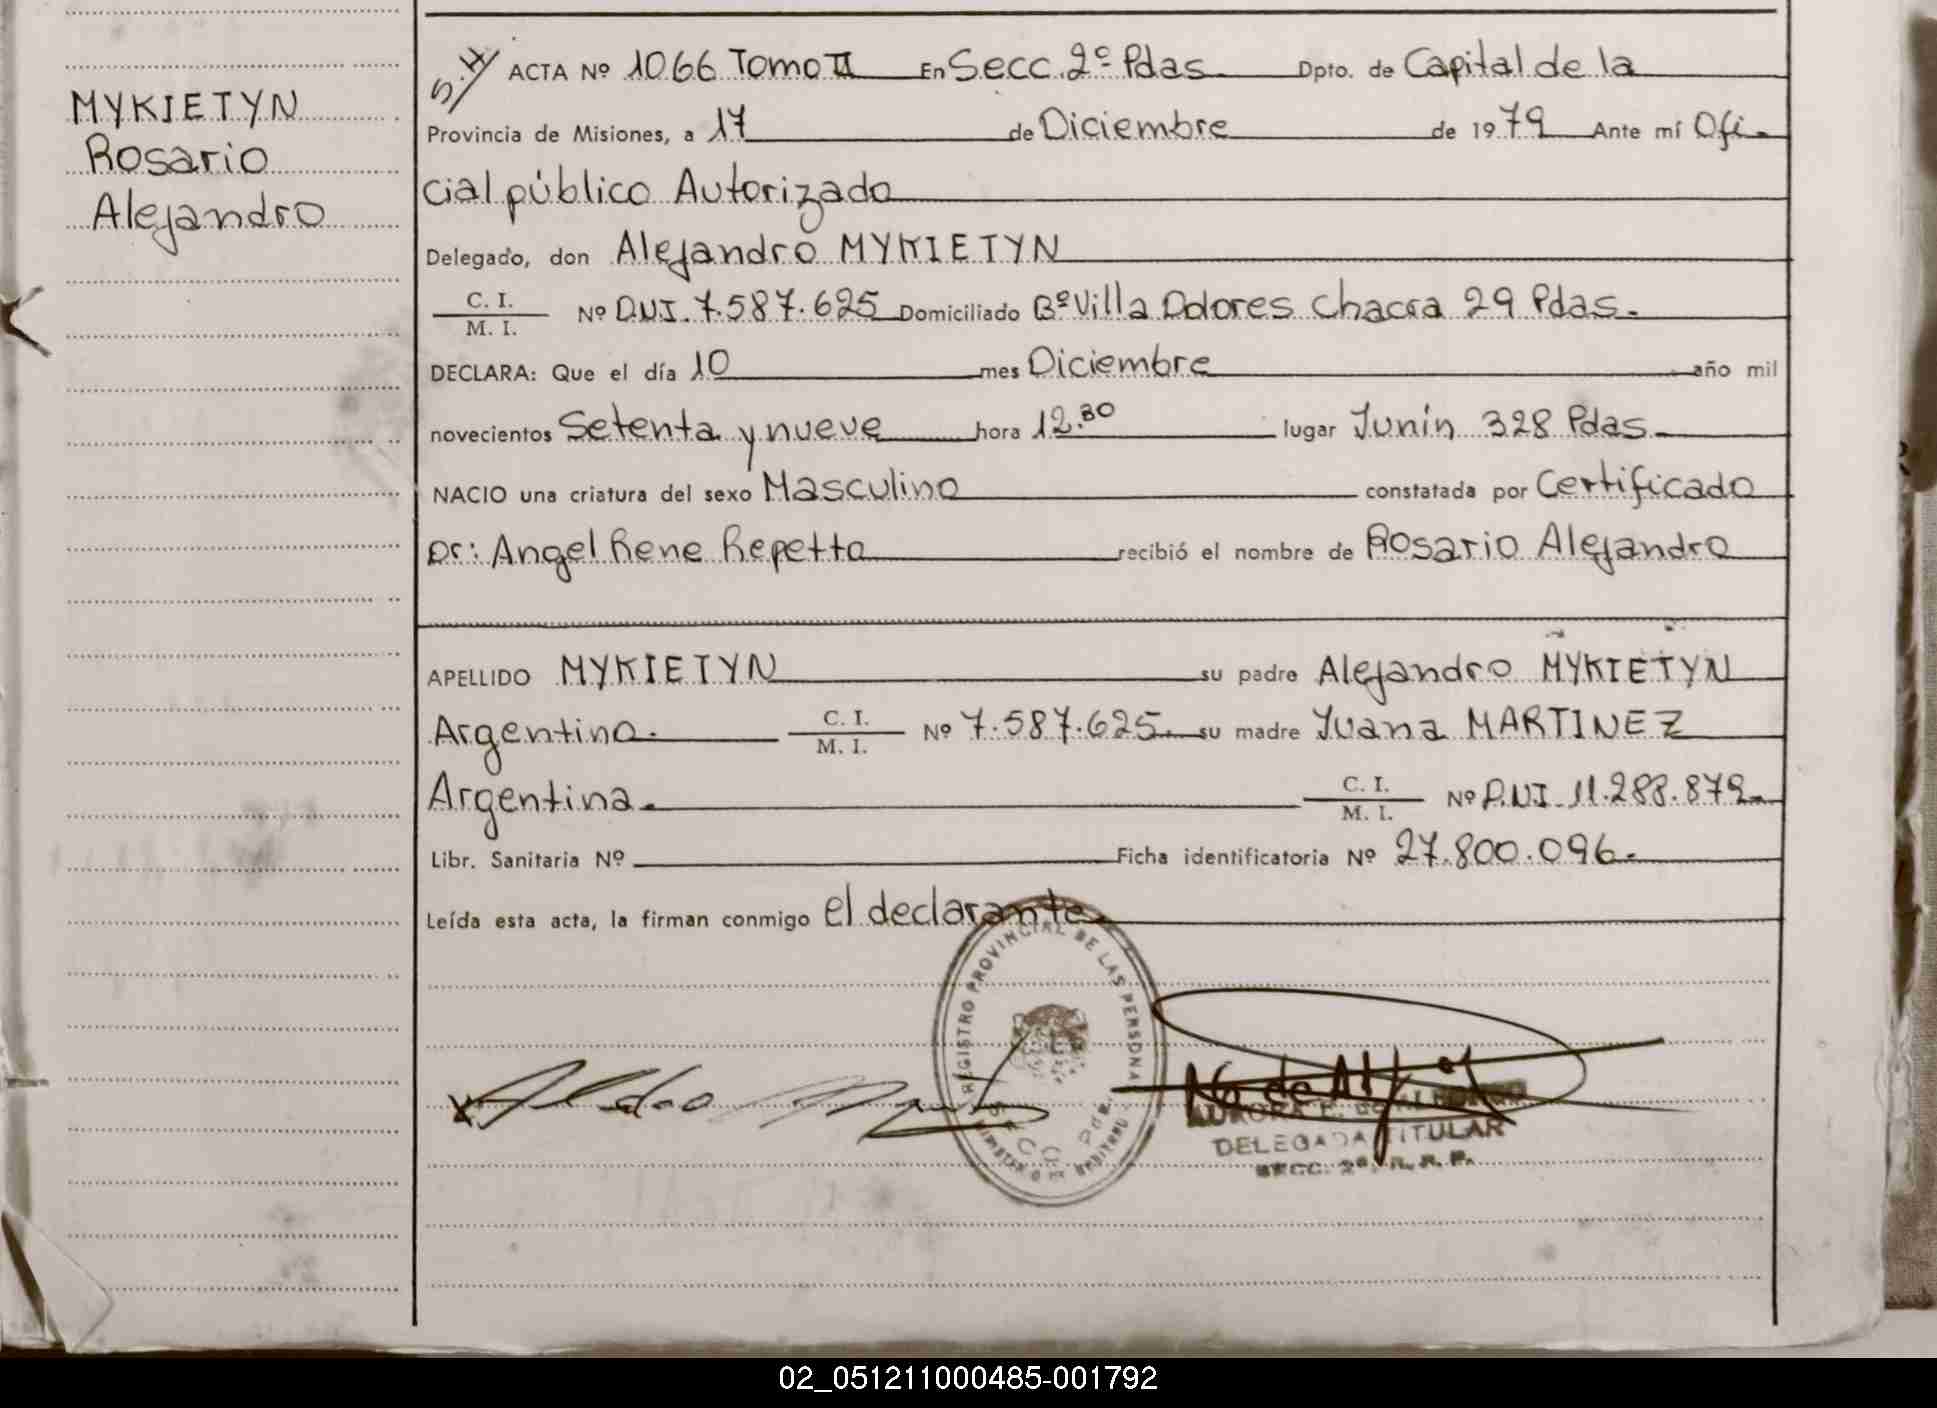 MYKIETYN
Rosario
Alejandro
S.H/ ACTA Nº 1066 Tomo II En Secc. 2º Pdas. Dpto. de Capital de la
Provincia de Misiones, a 17 de Diciembre de 1979 Ante mí Ofi-
cial público Autorizado
Delegado, don Alejandro MYKIETYN
C. I.
M. I. Nº D.N.I. 7.587.625 Domiciliado Bº Villa Dolores Chacra 29 Pdas.
DECLARA: Que el día 10 mes Diciembre año mil
novecientos Setenta y nueve hora 12.30 lugar Junín 328 Pdas.
NACIO una criatura del sexo Masculino constatada por Certificado
Dr: Angel Rene Repetto recibió el nombre de Rosario Alejandro
APELLIDO MYKIETYN su padre Alejandro MYKIETYN
Argentino. C. I.
M. I. Nº 7.587.625. su madre Juana MARTINEZ
Argentina. C. I.
M. I. Nº D.N.I. 11.288.879.
Libr. Sanitaria Nº Ficha identificatoria Nº 27.800.096.
Leída esta acta, la firman conmigo el declarante
REGISTRO PROVINCIAL DE LAS PERSONAS
DELEGADA TITULAR
SECC. 2ª. R. R. P.
02_051211000485-001792